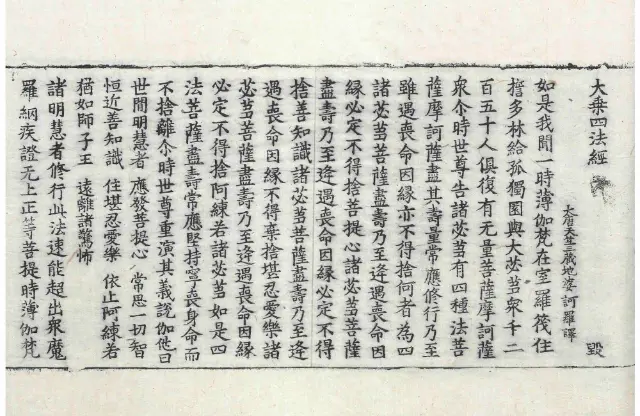 大乗四法經
大唐天竺三藏地婆訶羅譯 毀
如是我聞一時薄伽梵在室羅筏住
誓多林給孤獨園與大苾芻衆千二
百五十人俱復有无量菩薩摩訶薩
衆尒時世尊告諸苾芻有四種法菩
薩摩訶薩盡其壽量常應修行乃至
雖遇喪命因緣亦不得捨何者為四
諸苾芻菩薩盡壽乃至逢遇喪命因
緣必定不得捨菩提心諸苾芻菩薩
盡壽乃至逢遇喪命因緣必定不得
捨善知識諸苾芻菩薩盡壽乃至逢
遇喪命因緣不得棄捨堪忍愛樂諸
苾芻菩薩盡壽乃至逢遇喪命因緣
必定不得捨阿練若諸苾芻如是四
法菩薩盡壽常應堅持寧喪身命而
不捨離尒時世尊重演其義說伽他曰
世間明慧者 應發菩提心 常思一切智
恒近善知識 住堪忍愛樂 依止阿練若
猶如師子王 遠離諸驚怖
諸明慧者修行此法速能超出衆魔
羅網疾證无上正等菩提時薄伽梵